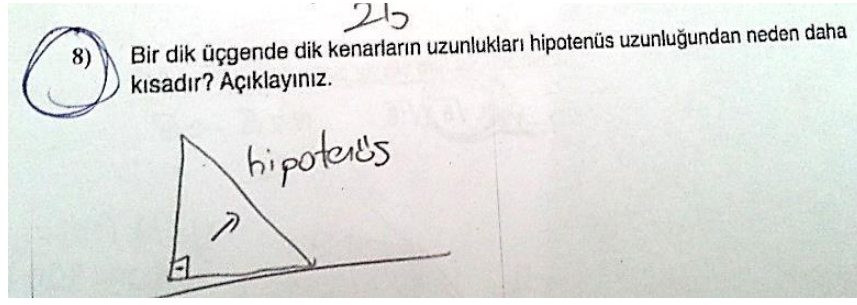 25
8) Bir dik üçgende dik kenarların uzunlukları hipotenüs uzunluğundan neden daha
kısadır? Açıklayınız.
hipotenüs